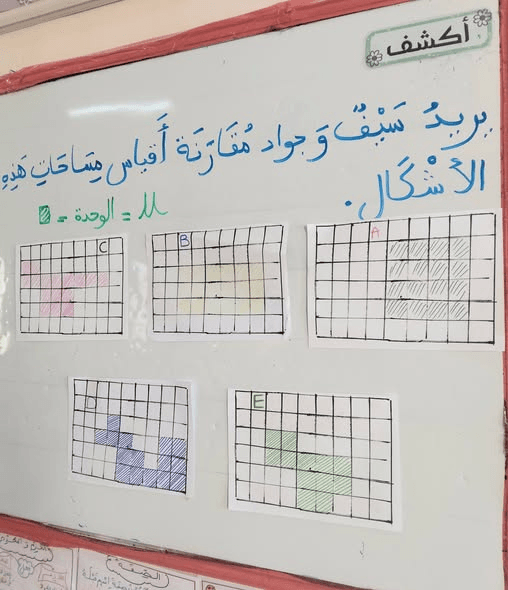 أكشف
يريدُ سَيْفٌ وَجواد مُقَارَنَة أَقياس مِسَاحَاتِ هَذِهِ
الأَشْكَالِ.
u = الوحدة =
C
B
A
D
E